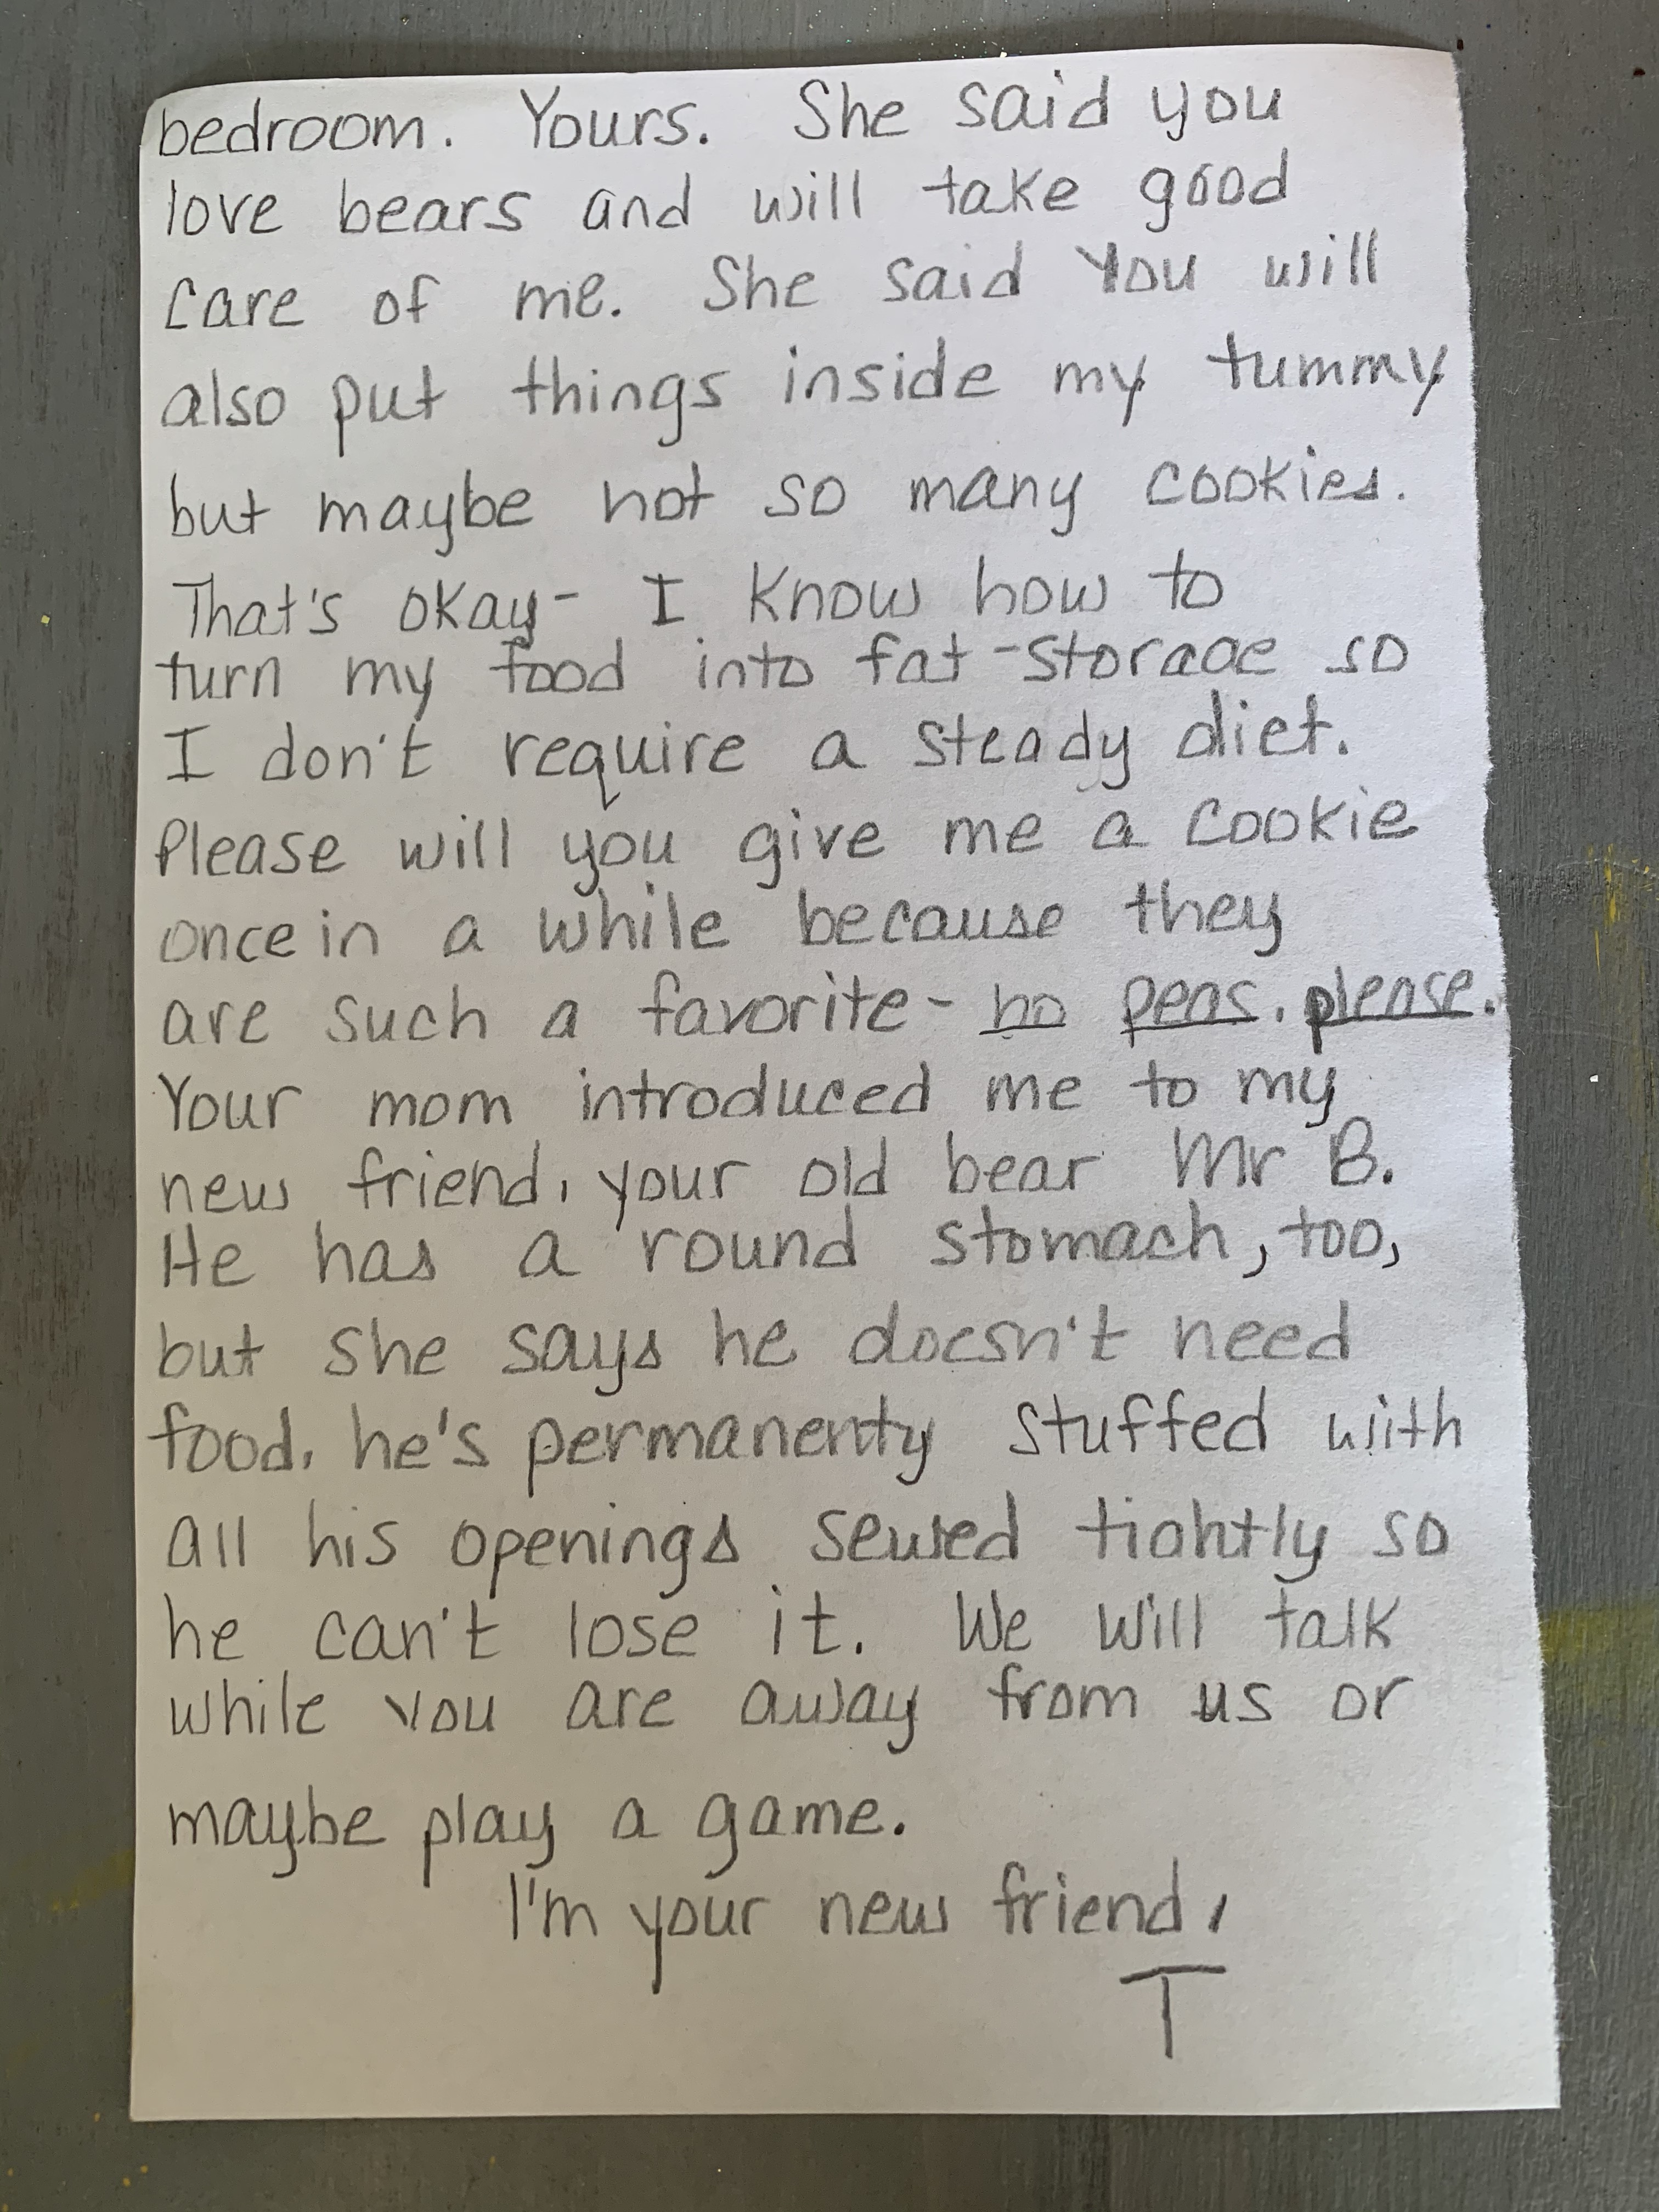 bedroom. Yours. She said you
love bears and will take good
care of me. She said you will
also put things inside my tummy
but maybe not so many cookies.
That's okay- I know how to
turn my food into fat-storage so
I don't require a steady diet.
Please will you give me a cookie
once in a while because they
are such a favorite- no peas, please.
Your mom introduced me to my
new friend, your old bear Mr B.
He has a round stomach, too,
but she says he doesn't need
food, he's permanenty stuffed with
all his openings sewed tightly so
he can't lose it. We will talk
while you are away from us or
maybe play a game.
I'm your new friend,
T